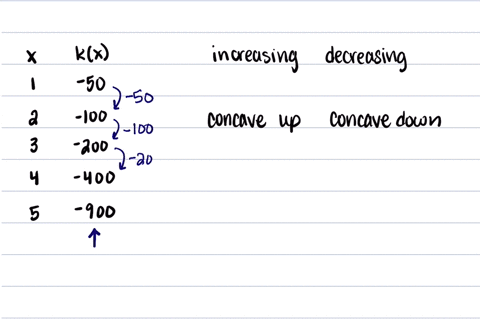 x k(x) increasing decreasing
1 -50
-50
2 -100 concave up concave down
-100
3 -200
-20
4 -400
5 -900